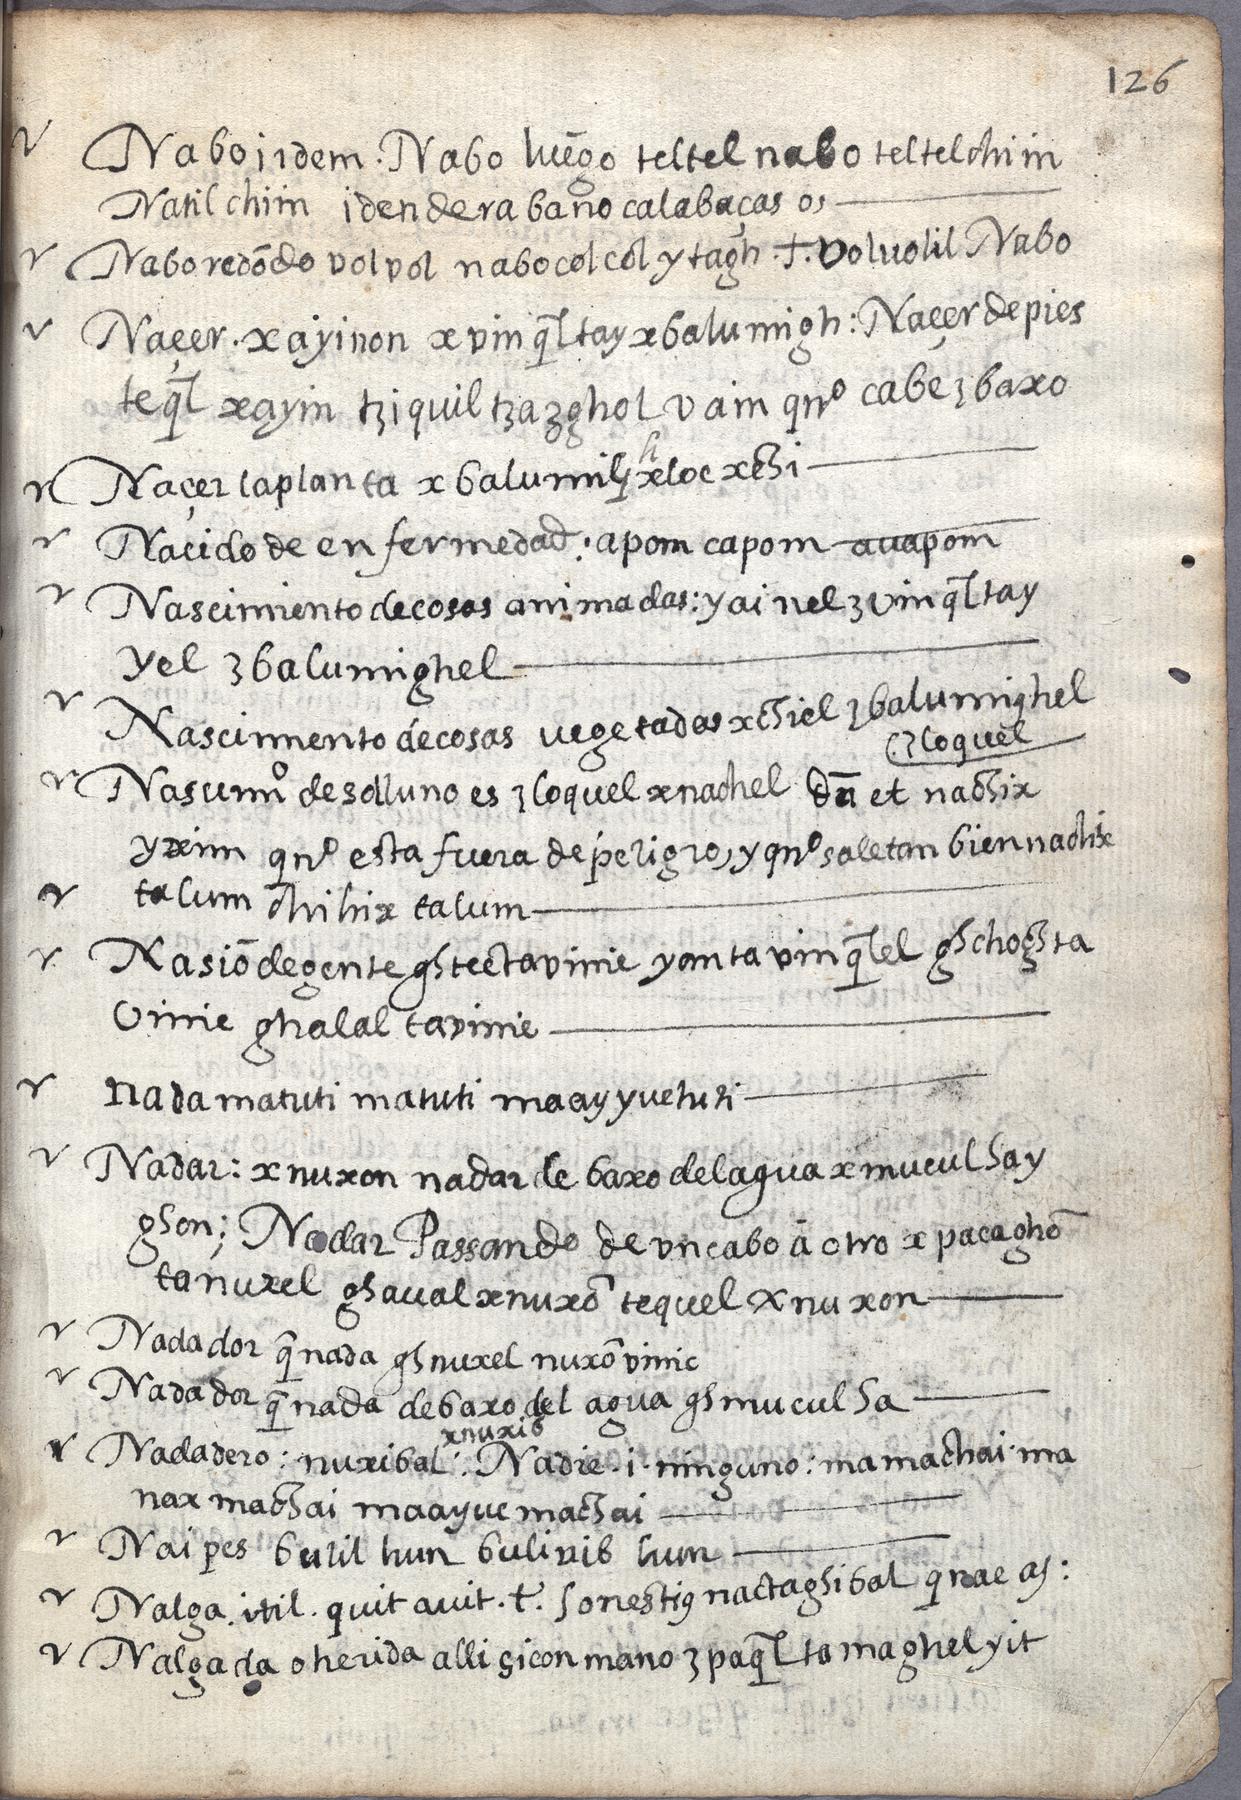 126
Nabo i idem. Nabo luēgo teltel nabo teltelchim
Natil chim iden de rabano calabaças os
Nabo redōdo volvol nabo col col ytagh .t. voluolil Nabo
Naçer. xayinon xvinq̄l tay xbalumigh: Naçer de pies
teq̄l xayin tziquil tzazghol vain qn̄o cabez baxo
Naçer la planta xbalumih xloc xchi
Nacido de enfermedad: apom capom auapom
Nascimiento de cosas animadas: yainel zvinq̄l tay
yel zbalumighel
Nascimiento de cosas vegetadas xchiel zbalumighel
zloquel
Nascimo de sol luno es zloquel xnachel dn̄ et nachix
yxim qn̄o esta fuera de peligro, y qn̄o sale tan bien nachix
talum chihix talum
Nasiō de gente ghtecta vinic yonta vinq̄lel ghchoghta
vinic ghalal ta vinic
nada matuti matuti maay yuetuti
Nadar: xnuxon nadar de baxo del agua xmucul hay
ghon; Nadar Passando de vn cabo ā otro xpacaghō
ta nuxel ghaual xnuxō tequel xnuxon
Nadador q̄ nada ghnuxel nuxō vinic
Nadador q̄ nada debaxo del agua ghmucul ha
xnuxib
Nadadero: nuxibal: Nadie .i. ninguno: ma machai. ma
nax machai maayuc machai
Naipes bulil hun bulivib hum
Nalga. itil. quit auit .t. honestig nactaghibal q nae as:
Nalgada o herida alli si con mano zpaq̄l ta maghel yit